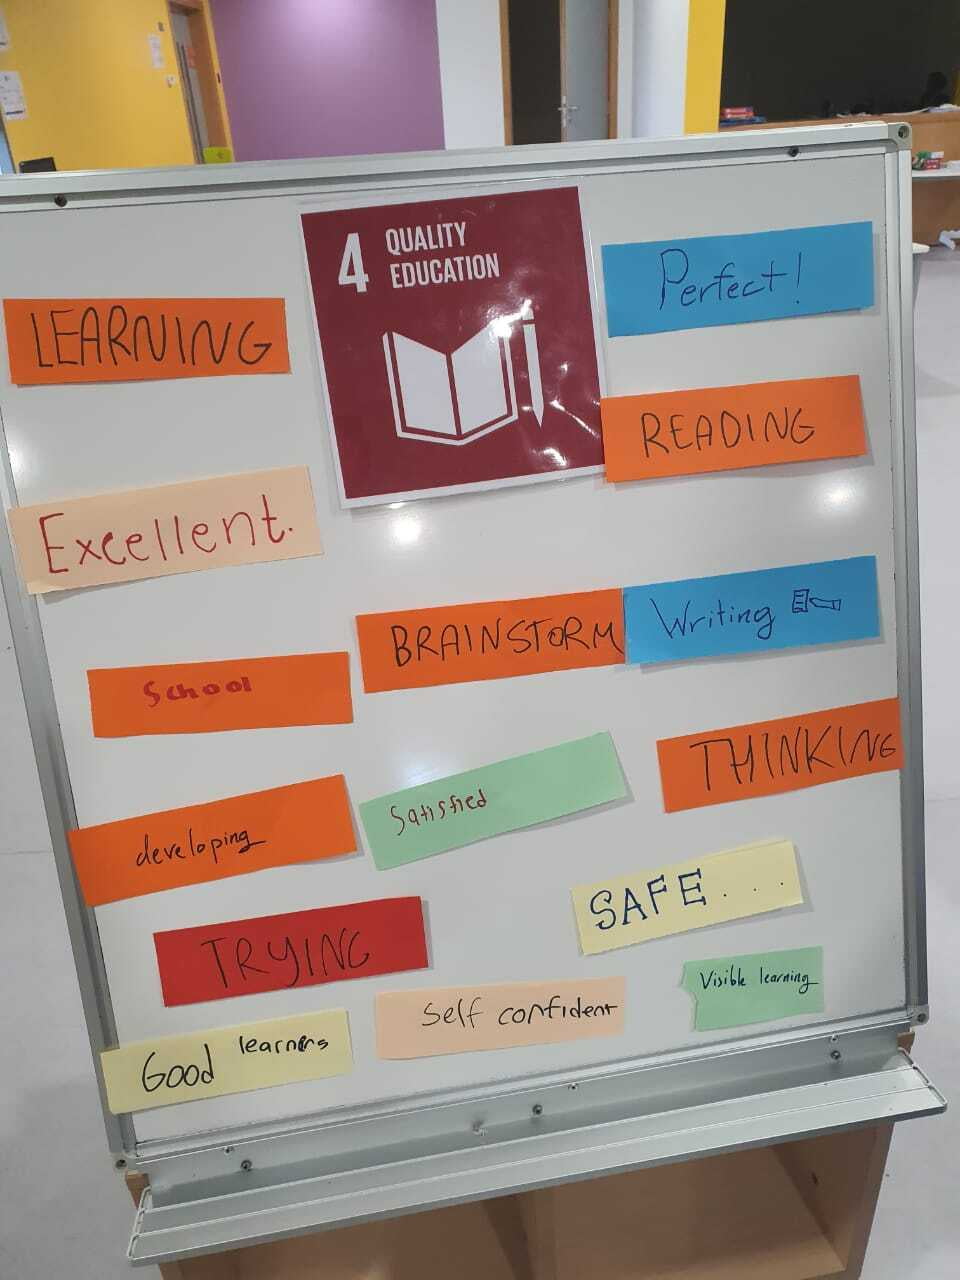 4 QUALITY
EDUCATION
Perfect!
LEARNING
READING
Excellent.
BRAINSTORM
Writing
School
THINKING
Satisfied
developing
SAFE....
TRYING
Visible learning
Self confident
Good learners